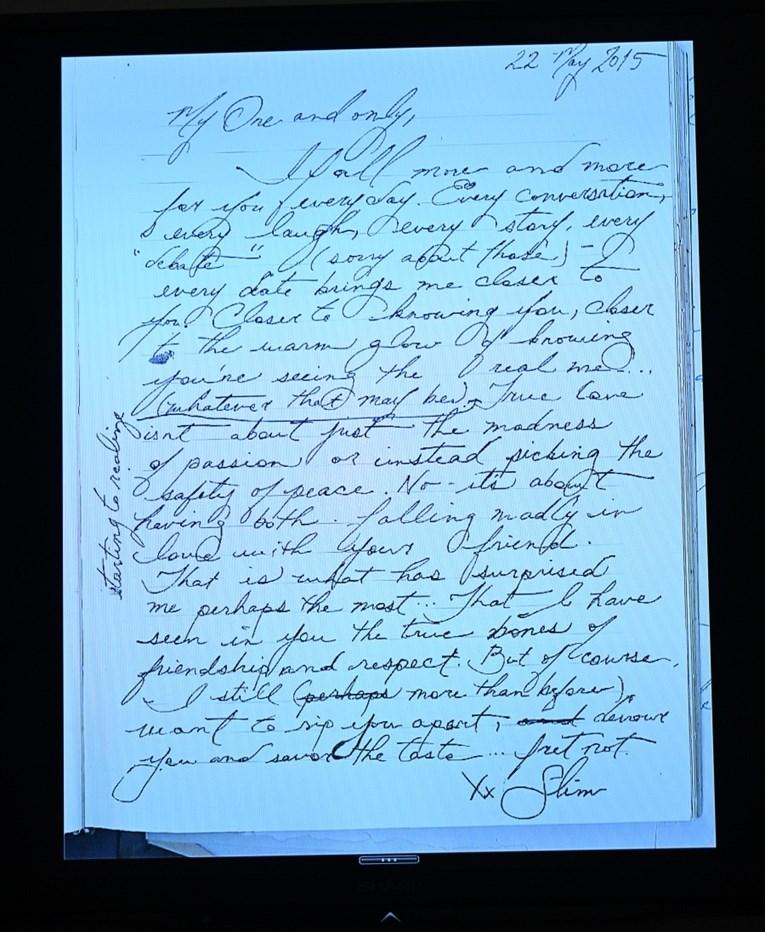 22 May 2015
My One and only,
I fall more and more
for you every day. Every conversation,
every laugh, every story, every
"debate" (sorry about those) - I
every date brings me closer to
you. Closer to knowing you, closer
to the warm glow of knowing
you're seeing the real me...
(whatever that may be). True love
isnt about just the madness
of passion or instead picking the
safety of peace. No - its about
having both. falling madly in
love with your friend.
That is what has surprised
me perhaps the most... That I have
seen in you the true bones of
friendship and respect. But of course,
I still (perhaps more than before),
want to rip you apart, and devour
you and savor the taste ... fret not.
Xx Slim
starting to realize
SHARP